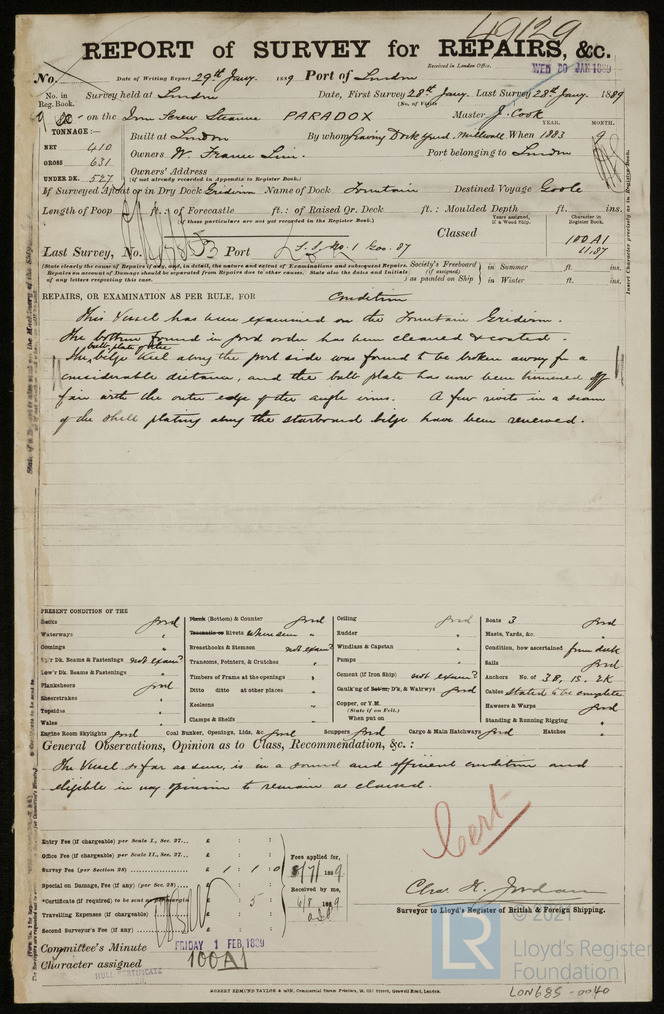 49129
REPORT of SURVEY for REPAIRS, &c.
Received in London Office.
WED 30 JAN 1889
No. Date of Writing Report 29th Jany. 1889 Port of London
No. in Reg. Book. Survey held at London Date, First Survey 28th Jany. Last Survey 28th Jany. 1889
(No. of Visits
on the Iron Screw Steamer PARADOX Master J. Cook
TONNAGE:— Built at London By whom Graving Dock Yard, Millwall When 1883 YEAR. MONTH. 9
NET 410
GROSS 631
UNDER DK. 527
Owners W. France Port belonging to London
Owners' Address
(if not already recorded in Appendix to Register Book.)
If Surveyed Afloat or in Dry Dock Gridiron Name of Dock Fountain Destined Voyage Goole
Length of Poop ft.: of Forecastle ft.: of Raised Qr. Deck ft.: Moulded Depth ft. ins.
(if those particulars are not yet recorded in the Register Book.)
Years assigned, if a Wood Ship.
Character in Register Book.
Classed 100 A1
11.87
Last Survey, No. 47853 Port S.S. No. 1 Goo. 87
(State clearly the cause of Repairs if any, and, in detail, the nature and extent of Examinations and subsequent Repairs. Repairs on account of Damage should be separated from Repairs due to other causes. State also the dates and Initials of any letters respecting this case.
Society's Freeboard (if assigned) as painted on Ship
in Summer ft. ins.
in Winter ft. ins.
Insert Character precisely as in Register Book.
REPAIRS, OR EXAMINATION AS PER RULE, FOR Condition
This Vessel has been examined on the Fountain Gridiron.
The bottom found in good order has been cleaned & coated.
bulb plate of the
The bilge keel along the port side was found to be broken away for a
considerable distance, and the bulb plate has now been trimmed off
fair with the outer edge of the angle irons. A few rivets in a seam
of the shell plating along the starboard bilge have been renewed.
PRESENT CONDITION OF THE
Decks good
Waterways "
Comings "
Up'r Dk. Beams & Fastenings not exam'd
Low'r Dk. Beams & Fastenings "
Planksheers good
Sheerstrakes "
Topsides "
Wales "
Plank (Bottom) & Counter good
Treenails or Rivets where seen "
Breasthooks & Stemson not exam'd
Transoms, Pointers, & Crutches "
Timbers of Frame at the openings "
Ditto ditto at other places "
Keelsons "
Clamps & Shelfs "
Ceiling good
Rudder "
Windlass & Capstan "
Pumps "
Cement (if Iron Ship) not exam'd
Caulk'ng of Bottom, D'k, & Waterwys good
Copper, or Y.M. (State if on Felt.)
When put on
Boats 3 good
Masts, Yards, &c. "
Condition, how ascertained from deck
Sails good
Anchors No. of 3 B, 1 S, 2 K
Cables stated to be complete
Hawsers & Warps good
Standing & Running Rigging "
Engine Room Skylights good Coal Bunker, Openings, Lids, &c. good Scuppers good Cargo & Main Hatchways good Hatches "
General Observations, Opinion as to Class, Recommendation, &c.:
The Vessel so far as seen, is in a sound and efficient condition and
eligible in my opinion to remain as classed.
Entry Fee (if chargeable) per Scale I., Sec. 27... £ : :
Office Fee (if chargeable) per Scale II., Sec. 27... £ : :
Survey Fee (per Section 28) £ 1 : 1 : 0
Special on Damage, Fee (if any) (per Sec. 28) £ : :
*Certificate (if required) to be sent £ : 5 :
Travelling Expenses (if chargeable) £ : :
Second Surveyor's Fee (if any) £ : :
Fees applied for, 8/7/1889
Received by me, 6/8 1889
Cert
Chas. H. Jordan
Surveyor to Lloyd's Register of British & Foreign Shipping.
Committee's Minute FRIDAY 1 FEB 1889
Character assigned 100A1
HULL CERTIFICATE
© 2021
LR
Lloyd's Register
Foundation
LON685-0040
ROBERT EDMUND TAYLOR & SON, Commercial Steam Printers, 19, Old Street, Goswell Road, London.